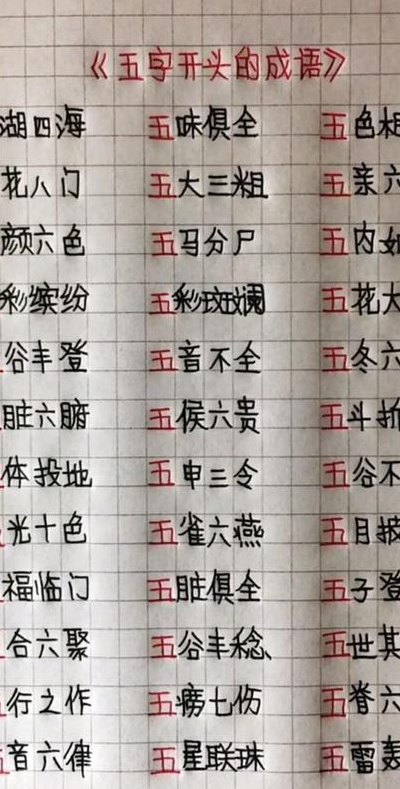 《五字开头的成语》
湖四海 五味俱全 五色相
花八门 五大三粗 五亲六
颜六色 五马分尸 五内如
彩缤纷 五彩斑斓 五花大
谷丰登 五音不全 五冬六
脏六腑 五侯六贵 五斗折
体投地 五申三令 五谷不
光十色 五雀六燕 五月披
福临门 五脏俱全 五子登
合六聚 五谷丰稔 五世其
行之作 五痨七伤 五脊六
音六律 五星联珠 五雷轰